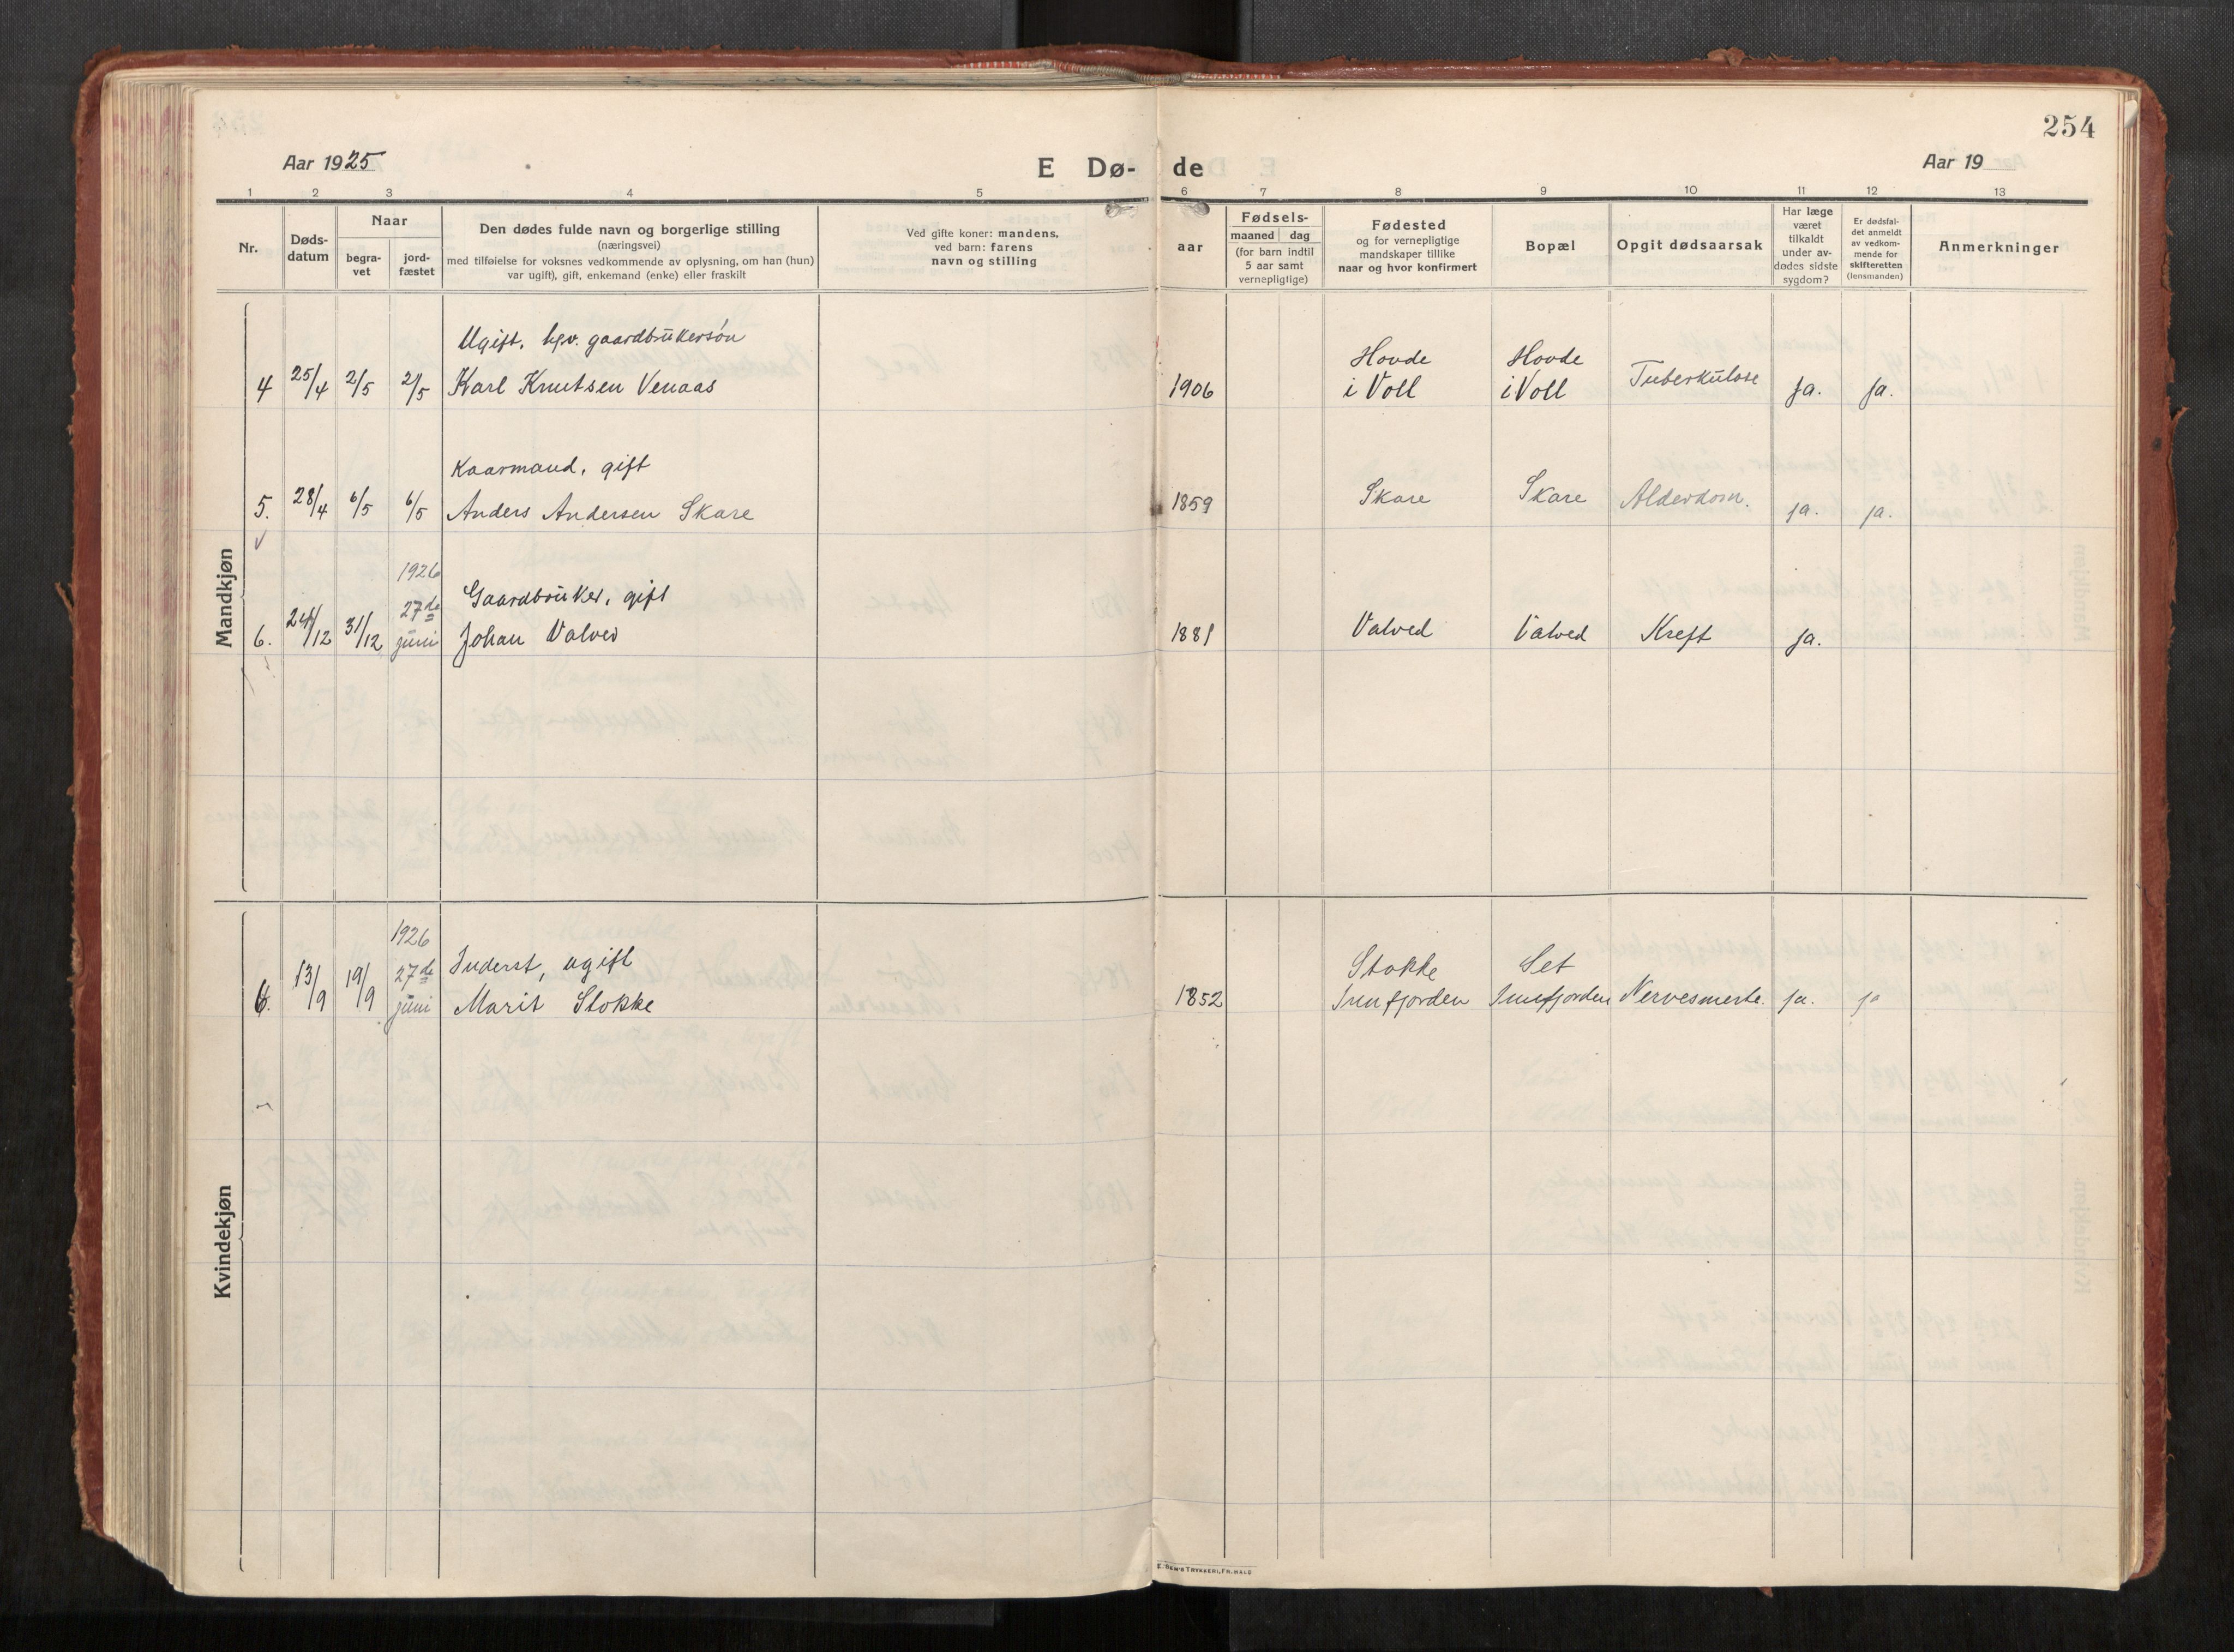 254
Aar 1925
E Dø- de
Aar 19
1 2 3 4 5 6 7 8 9 10 11 12 13
Nr.
Døds-
datum
Naar
begra-
vet
jord-
fæstet
Den dødes fulde navn og borgerlige stilling
(næringsvei)
med tilføielse for voksnes vedkommende av oplysning, om han (hun)
var ugift), gift, enkemand (enke) eller fraskilt
Ved gifte koner: mandens,
ved barn: farens
navn og stilling
Fødsels-
aar
maaned dag
(for barn indtil
5 aar samt
vernepligtige)
Fødested
og for vernepligtige
mandskaper tillike
naar og hvor konfirmert
Bopæl
Opgit dødsaarsak
Har læge
været
tilkaldt
under av-
dødes sidste
sygdom?
Er dødsfal-
det anmeldt
av vedkom-
mende for
skifteretten
(lensmanden)
Anmerkninger
Mandkjøn
Ugift, hjv. gaardbrukersøn
Hovde Hovde
4 25/4 2/5 2/5 Karl Knutsen Venaas 1906 i Voll i Voll Tuberkulose ja. ja.
Kaarmand, gift
5. 28/4 6/5 6/5 Anders Andersen Skare 1859 Skare Skare Alderdom. ja. ja.
1926
27de Gaardbruker, gift
6. 24/12 31/12 juni Johan Valved 1881 Valved Valved Kreft ja.
Kvindekjøn
1926
27de Inderst, ugift Stokke Set
6. 13/9 19/9 juni Marit Stokke 1852 Innfjorden Innfjorden Nervesmerte. ja. ja